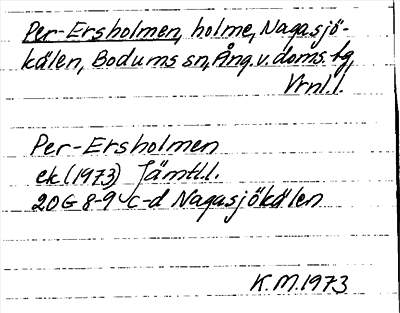 Per-Ersholmen, holme, Nagasjö-
kälen, Bodums sn, Ång. v. doms. tg,
Vrnl. l.
Per-Ersholmen
ek (1973) Jämtl. l.
20G 8-9 c-d Nagasjökälen
K.M. 1973